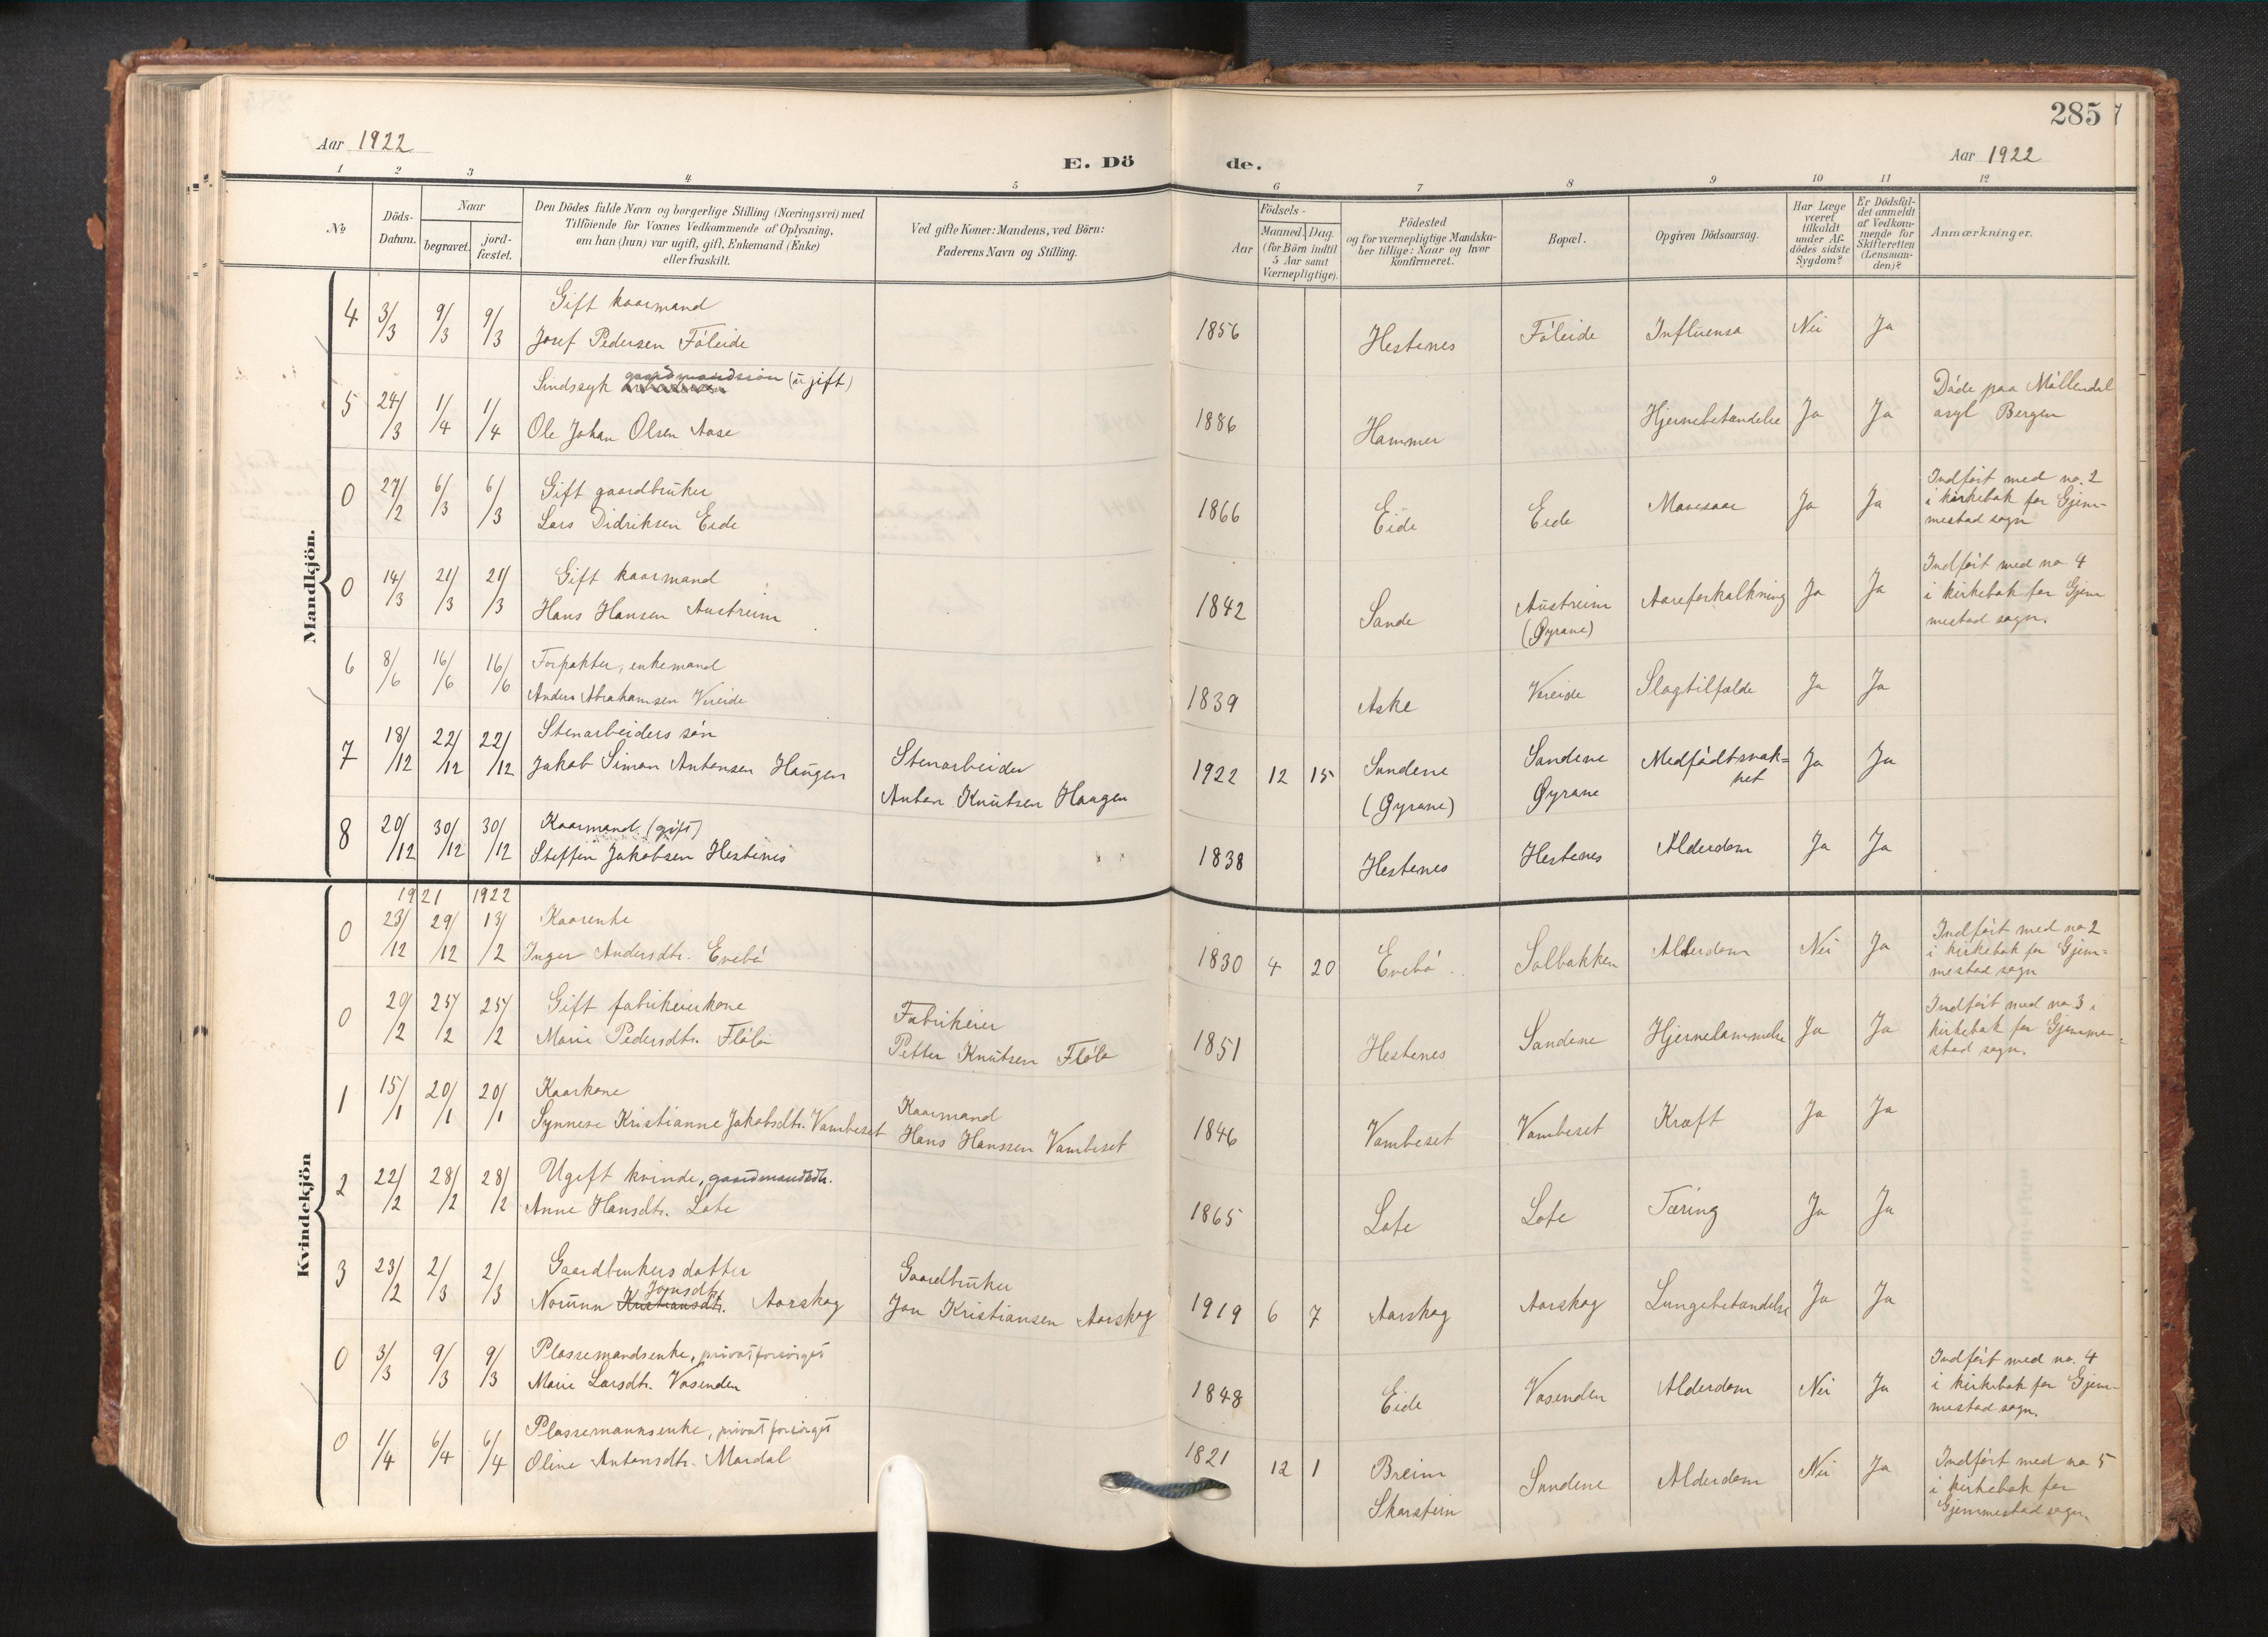 285
Aar 1922
E. Dö de.
Aar 1922
1 2 3 4 5 6 7 8 9 10 11 12
№
Döds-Datum.
Naar
begravet.
jord-fæstet.
Den Dödes fulde Navn og borgerlige Stilling (Næringsvei) med
Tilföiende for Voxnes Vedkommende af Oplysning,
om han (hun) var ugift, gift, Enkemand (Enke)
eller fraskilt.
Ved gifte Koner: Mandens, ved Börn:
Faderens Navn og Stilling.
Födsels-
Aar
Maaned. Dag.
(for Börn indtil
5 Aar samt
Værnepligtige).
Födested
og for værnepligtige Mandska-
ber tillige: Naar og hvor
konfirmeret.
Bopæl.
Opgiven Dödsaarsag.
Har Læge
været
tilkaldt
under Af-
dödes sidste
Sygdom?
Er Dödsfal-
det anmeldt
af Vedkom-
mende for
Skifteretten
(Lensman-
den)?
Anmærkninger.
Mandkjön.
4 3/3 9/3 9/3 Gift kaarmand
Josef Pedersen Föleide 1856 Hestenes Föleide Influensa Nei Ja
5 24/3 1/4 1/4 Sindssyk gaardmandssøn (ugift)
Ole Johan Olsen Aase 1886 Hammer Hjernebetændelse Ja Ja
Döde paa Möllendal
asyl Bergen
0 27/2 6/3 6/3 Gift gaardbruker
Lars Didriksen Eide 1866 Eide Eide Mavesaar Ja Ja
Indført med no. 2
i kirkebok for Gjem-
mestad sogn
0 14/3 21/3 21/3 Gift kaarmand
Hans Hansen Austreim 1842 Sande Austreim
(Øyrane)
Aareforkalkning Ja Ja
Indført med no 4
i kirkebok for Gjem
mestad sogn.
6 8/6 16/6 16/6 Forpakter, enkemand
Anders Abrahamsen Vereide 1839 Aske Vereide Slagtilfælde Ja Ja
7 18/12 22/12 22/12 Stenarbeiders søn
Jakob Simon Antonsen Haugen
Stenarbeider
Anton Knutsen Haugen
1922 12 15 Sandene
(Øyrane)
Sandene
Øyrane
Medfødt svak=
het
Ja Ja
8 20/12 30/12 30/12 Kaarmand (gift)
Steffen Jakobsen Hestenes 1838 Hestenes Hestenes Alderdom Ja Ja
Kvindekjön
1921 1922
0 23/12 29/12 13/2 Kaarenke
Inger Andersdtr. Evebö 1830 4 20 Evebö Solbakken Alderdom Nei Ja
Indført med no 2
i kirkebok for Gjem=
mestad sogn
0 20/2 25/2 25/2 Gift fabrikeierkone
Marie Pedersdtr. Flölo
Fabrikeier
Petter Knutsen Flölo
1851 Hestenes Sandene Hjernelammelse Ja Ja
Indført med no 3 i
kirkebok for Gjemme-
stad sogn.
1 15/1 20/1 20/1 Kaarkone
Synneve Kristianne Jakobsdtr. Vambeset
Kaarmand
Hans Hanssen Vambeset
1846 Vambeset Vambeset Kræft Ja Ja
2 22/2 28/2 28/2 Ugift kvinde, gaardmandsdtr.
Anne Hansdtr. Lote 1865 Lote Lote Tæring Ja Ja
3 23/2 2/3 2/3 Gaardbrukers datter
Jonsdtr.
Norunn Kristiansdtr. Aarskog
Gaardbruker
Jon Kristiansen Aarskog
1919 6 7 Aarskog Aarskog Lungebetændelse Ja Ja
0 3/3 9/3 9/3 Plassemandsenke, privat forsørget
Marie Larsdtr. Vasenden 1848 Eide Vasenden Alderdom Nei Ja
Indført med no. 4
i kirkebok for Gjem-
mestad sogn.
0 1/4 6/4 6/4 Plassemannsenke, privat forsørget
Oline Antonsdtr. Mardal 1821 12 1 Breim
Skarstein
Sandene Alderdom Nei Ja
Indført med no 5
i kirkebok for
Gjemmestad sogn.